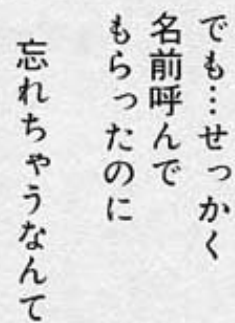 でも…せっかく
名前呼んで
もらったのに
忘れちゃうなんて